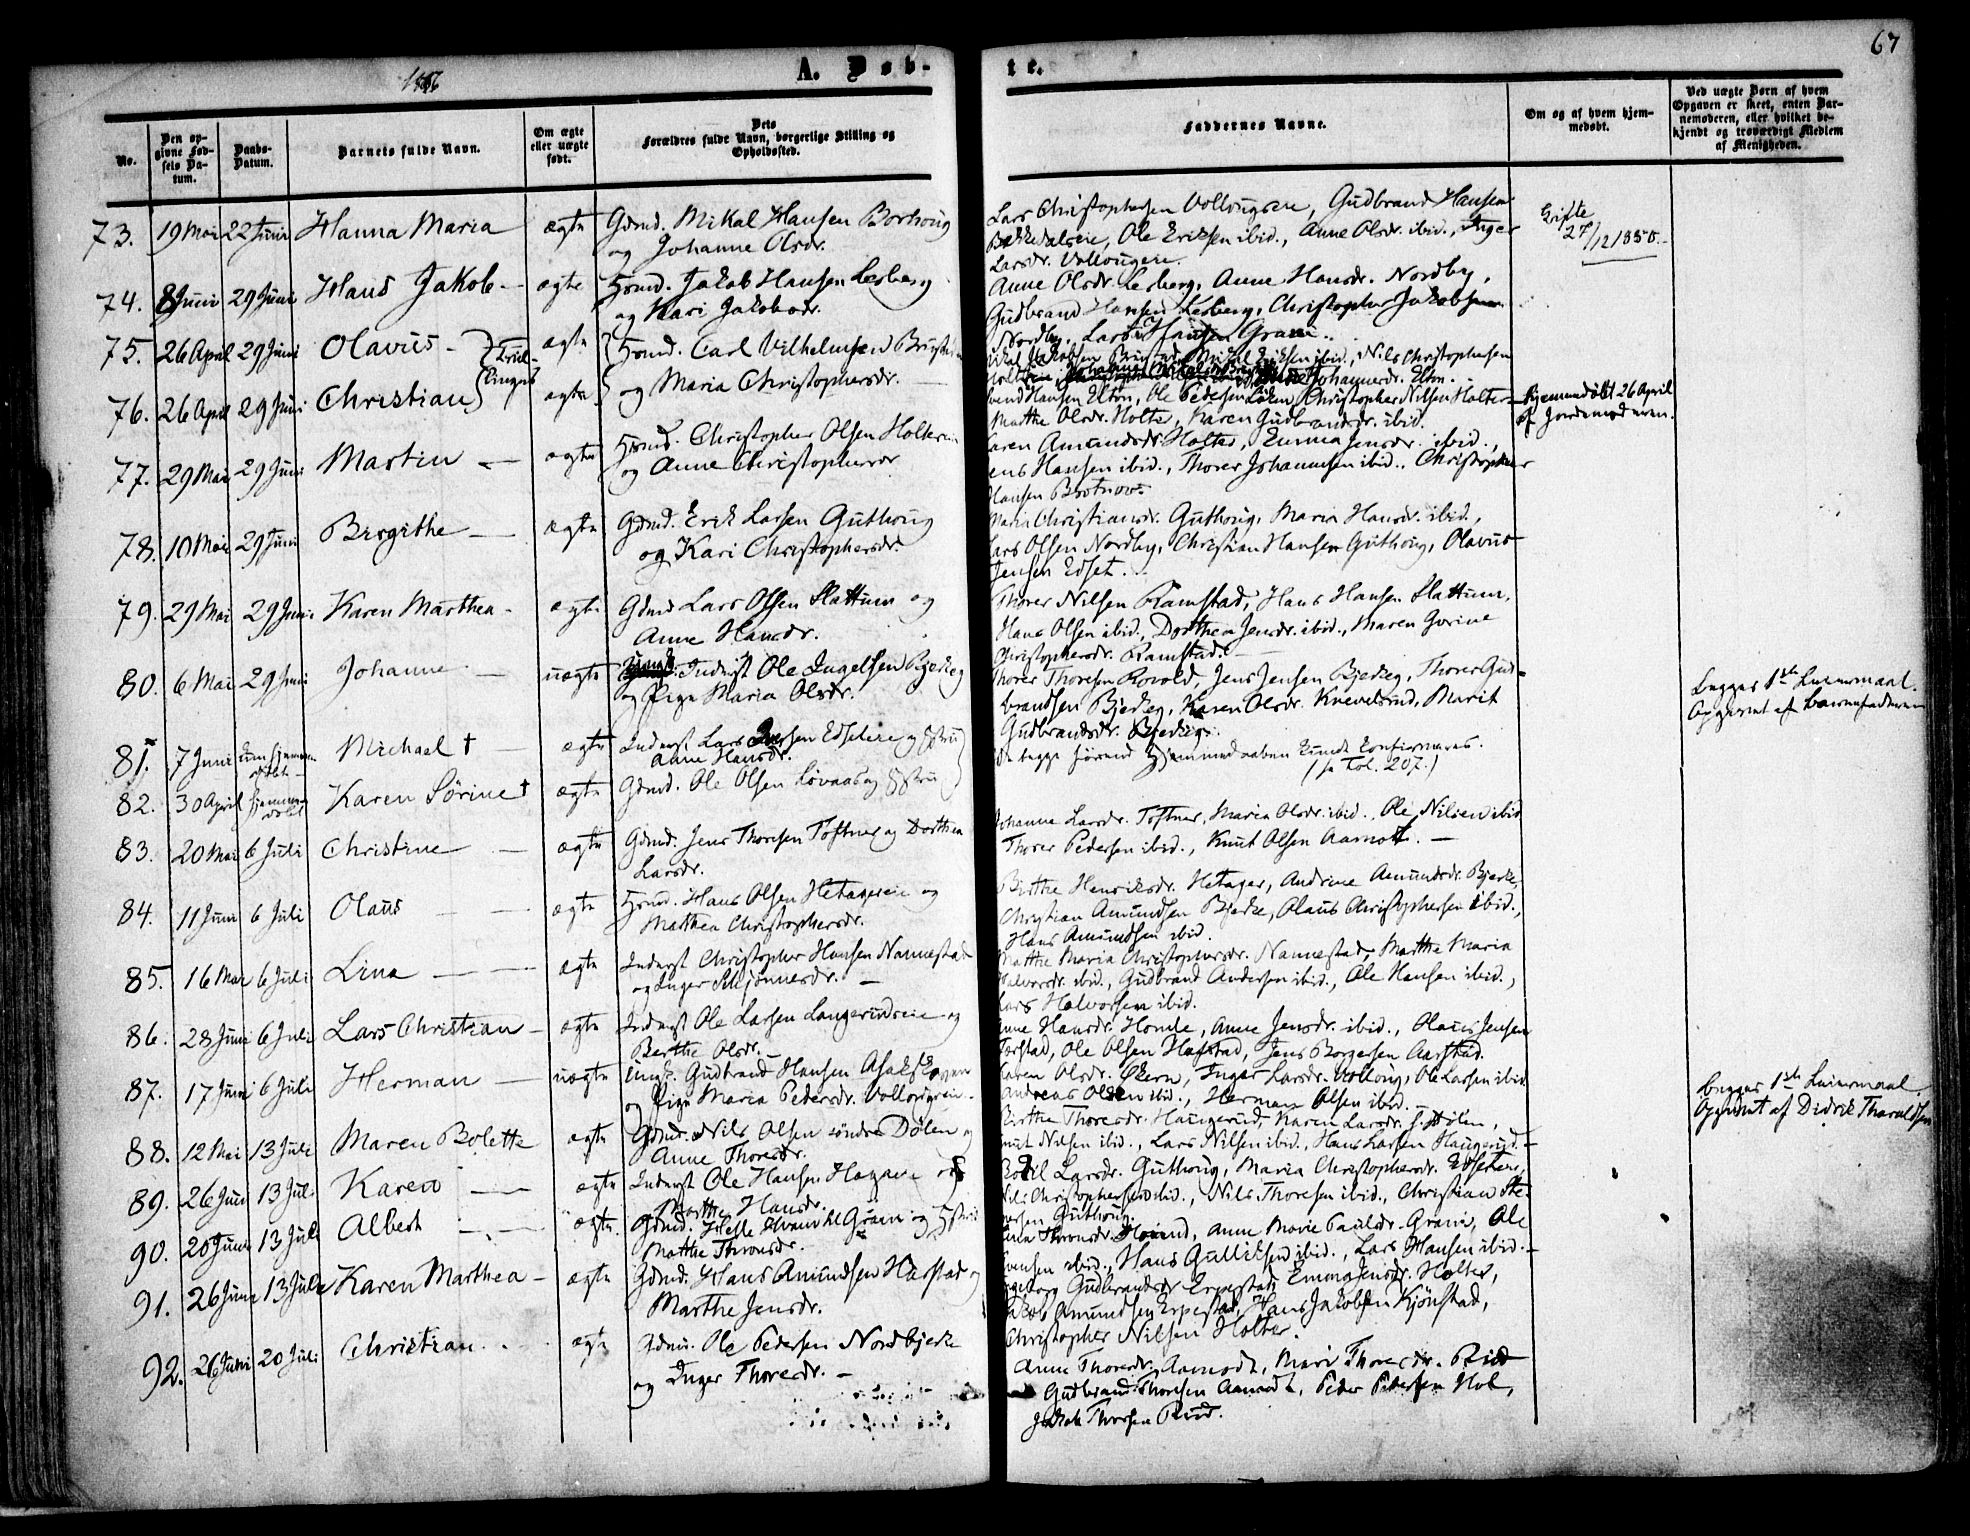 67
A. Døb-
te.
No.
Den op-
givne Fød-
sels Da-
tum.
Daabs-
Datum.
Barnets fulde Navn.
Om ægte
eller uægte
født.
Dets
Forældres fulde Navn, borgerlige Stilling og
Opholdssted.
Faddernes Navne.
Om og af hvem hjem-
medøbt.
Ved uægte Børn af hvem
Opgaven er skeet, enten Bar-
nemoderen, eller hvilket be-
kjendt og troværdigt Medlem
af Menigheden.
73. 19 Mai 22 Juni Hanna Maria ægte Gdmd. Mikal Hansen
og Johanne Olsdr.
Lars Christophersen Vollougeie, Gudbrand Hansen
Bekkedalseie, Ole Eriksen ibid., Anne Olsdr. ibid., Inger
Larsdr. Vollougeie.
27/12 1850.
74. 8 Juni 29 Juni Hans Jakob - ægte Hsmd. Jakob Hansen Lesberg
og Kari Jakobsdr.
Anne Olsdr. Lesberg, Anne Hansdr. Nordby,
Gudbrand Hansen Lesberg, Christopher Jakobsen
Nordby, Lars Hansen Gram.
75. 26 April 29 Juni Olavus - ægte Hsmd. Carl Vilhelmsen
76. 26 April 29 Juni Christian ægte og Maria Christophersdr.
Tvil-
linger
Mikal Eriksen ibid., Nils Christophersen
Johannesdr. Elton.
Hansen Elton, Ole Pedersen Løken, Christopher Nilsen Holter
Marthe Olsdr. Holter, Karen Gudbrandsdr. ibid.
Hjemmedøbt 26 April
af Jordemoderen.
77. 29 Mai 29 Juni Martin - ægte Hsmd. Christopher Olsen Holtereie
og Anne Christophersdr
Karen Amundsdr. Holter, Emma Jensdr. ibid.,
Jens Hansen ibid., Thorer Johannesen ibid., Christopher
Hansen
78. 10 Mai 29 Juni Birgithe - ægte Gdmd. Erik Larsen Guthoug
og Kari Christophersdr.
Maria Christiansdr. Guthoug, Maria Hansdr. ibid.,
Lars Olsen Nordby, Christian Hansen Guthoug, Olavus
Jensen Edset.
79. 29 Mai 29 Juni Karen Marthea - ægte Gdmd Lars Olsen Slattum og
Anne Hansdr.
Thorer Nilsen Ramstad, Hans Hansen Slattum,
Hans Olsen ibid., Dorthea Jensdr. ibid., Maren Gorine
Christophersdr. Ramstad.
80. 6 Mai 29 Juni Johanne - uægte Inderst Ole Ingelsen Bjerkeg
og Pige Maria Olsdr.
Thorer Thoresen Rovold, Jens Jensen Bjerkeg, Thorer Gud-
brandsen Bjerkeg, Karen Olsdr. Knevelsrud, Marit
Gudbrandsdr. Bjerkeg.
begges 1ste Leiermaal.
Opgivet af barnefaderen
81. 7 Juni Michael † - ægte Inderst Lars Edseteie og Hstru
Anne Hansdr.
De begge førend Hjemmedaaben kunde konfirmeres.
(se Fol. 207.)
82. 30 April Hjemme-
døbt Karen Sørine † ægte Gdmd. Ole Olsen Løvaas og Hstru
83. 20 Mai 6 Juli Christine - ægte Gdmd. Jens Thoresen Toftner og Dorthea
Larsdr.
Johanne Larsdr. Toftner, Maria Olsdr. ibid., Ole Nilsen ibid
Thorer Pedersen ibid., Knut Olsen Aamot. -
84. 11 Juni 6 Juli Olaus - ægte Hsmd. Hans Olsen Hetagereie og
Marthea Christophersdr.
Birthe Henriksdr. Hetager, Andrine Amundsdr. Bjerke,
Christian Amundsen Bjerke, Olaus Christophersen ibid.,
Hans Amundsen ibid.
85. 16 Mai 6 Juli Lina - ægte Inderst Christopher Hansen Nannestad
og Inger Skjønnersdr. -
Marthe Maria Christophersdr. Nannestad, Marthe Maria
Halvorsdr. ibid., Gudbrand Andersen ibid., Ole Hansen ibid.,
Lars Halvorsen ibid.
86. 28 Juni 6 Juli Lars Christian - ægte Inderst Ole Larsen Langerudseie og
Berthe Olsdr. -
Anne Hansdr. Homle, Anne Jensdr. ibid., Olaus Jensen
Torstad, Ole Olsen Harstad, Jens Borgersen Aarstad.
87. 17 Juni 6 Juli Herman - uægte Ungk. Gudbrand Hansen Asakskoven
og Pige Maria Pedersdr. Vollougeie
Karen Olsdr. Økern, Inger Larsdr. Volloug, Ole Larsen ibid.
Andreas Olsen ibid., Herman Olsen ibid. -
begges 1ste Leiermaal.
Opgivet af Didrik Tharaldsen
88. 12 Mai 13 Juli Maren Bolette ægte Gdmd. Nils Olsen søndre Dølen og
Anne Thoresdr.
Birthe Thoresdr. Haugerud, Karen Larsdr. S. Dølen,
Knut Nilsen ibid., Lars Nilsen ibid., Hans Larsen Haugerud. -
89. 26 Juni 13 Juli Karen - ægte Inderst Ole Hansen og
Marthe Hansdr.
Bodil Larsdr. Guthoug, Maria Christophersdr. Edseteie,
Nils Christophersen ibid., Nils Thoresen ibid., Christian
Guthoug.
90. 20 Juni 13 Juli Albert - ægte Gdmd. Helle Gram og Hstru
Marthe Thronsdr.
Thronsdr. Anne Marie Paulsdr. Gram, Ole
Svensen ibid., Hans Gulliksen ibid., Lars Hansen ibid. -
91. 26 Juni 13 Juli Karen Marthea - ægte Gdmd. Hans Amundsen Harstad og
Marthe Jensdr.
Ingeborg Gudbrandsdr Erpestad, Emma Jensdr. Holter,
Jakob Amundsen Erpestad, Hans Jakobsen Kjønstad,
Christopher Nilsen Holter.
92. 26 Juni 20 Juli Christian - ægte Gdmd. Ole Pedersen Nordbjerke
og Inger Thoresdr. -
Anne Thoresdr. Aamodt, Mari Thoresdr. Rud
Gudbrand Thoresen Aamodt, Peder Pedersen Hol,
Jakob Thoresen Rud.